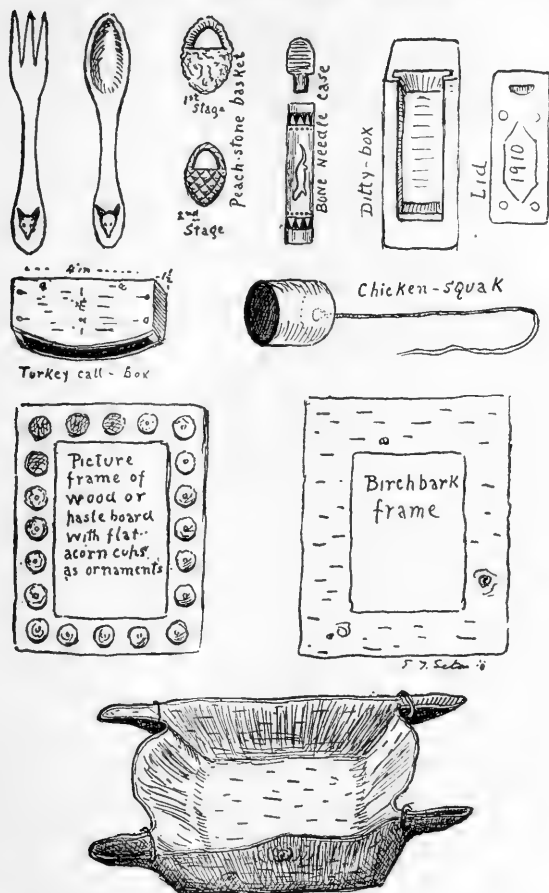 1st
Stage
2nd
Stage
Peach-stone basket
Bone Needle Case
Ditty-box
Lid
1910
4 in
1½
Turkey call - box
Chicken-squak
Picture
frame of
wood or
hasteboard
with flat
acorn cups
as ornaments
Birchbark
frame